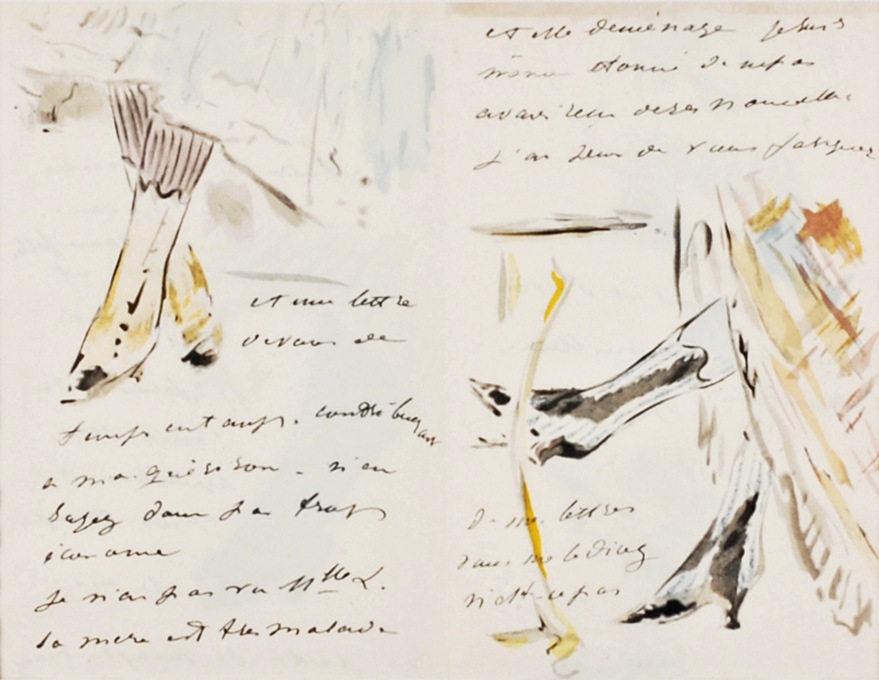 et une lettre
de vous de
temps en temps. contribuerait
a ma guérison - n'en
soyez donc pas trop
économe
je n'ai pas vu Mlle L.
sa mère est très malade
et elle déménage je suis
même étonné de ne pas
avoir reçu de ses nouvelles
j'ai peur de vous fatiguer
de mes lettres
vous me le diriez
n'est-ce pas